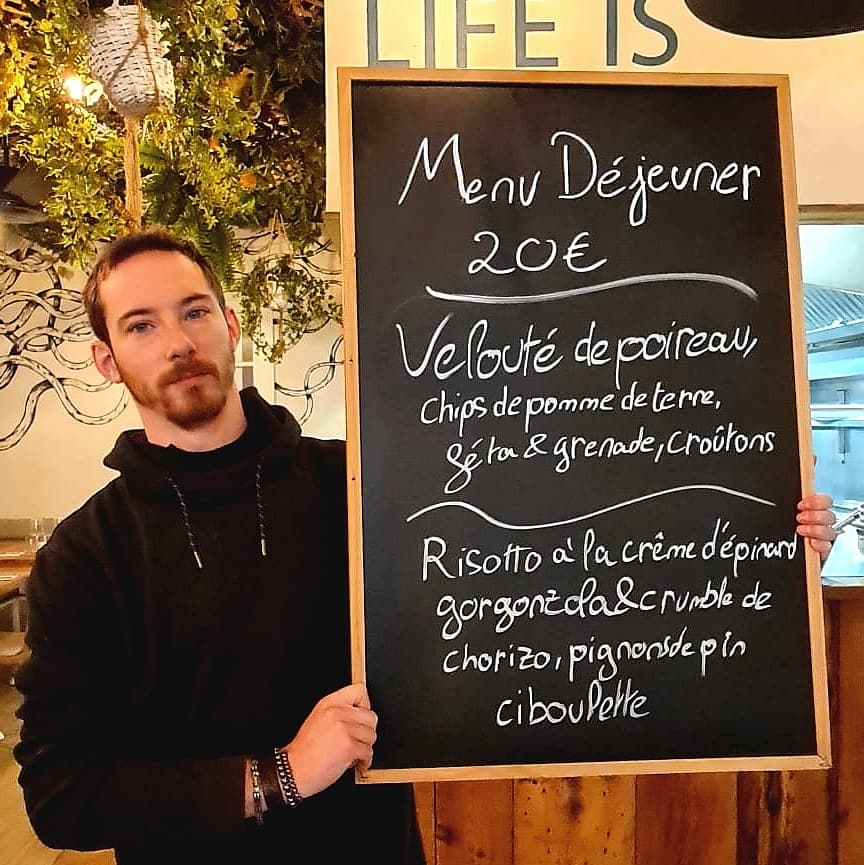 LIFE IS
Menu Déjeuner
20€
Velouté de poireau,
Chips de pomme de terre,
féta & grenade, Croûtons
Risotto à la crême d'épinard
gorgonzola & crumble de
chorizo, pignons de pin
ciboulette